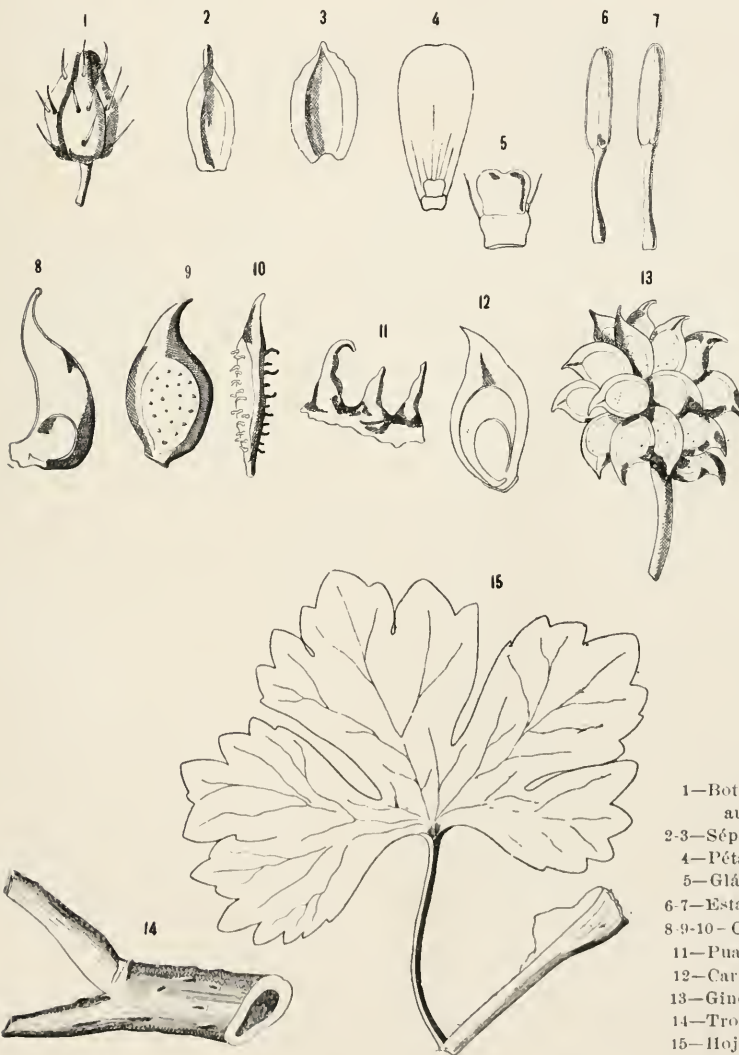 1 2 3 4 6 7
5
8 9 10 11 12 13
15
14
1—Bot
au
2-3—Sép
4—Péta
5—Glá
6-7—Esta
8-9-10-C
11—Pua
12—Car
13—Gino
14—Tro
15—Hoj